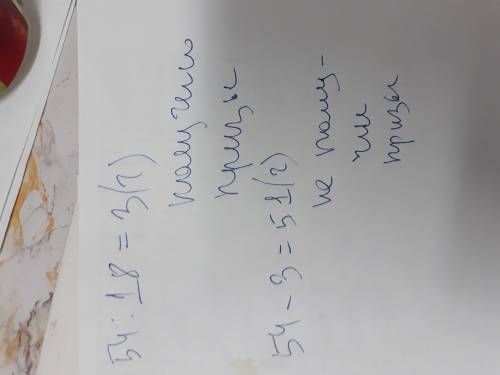 54 : 18 = 3 (г)
получили
призы
54 - 3 = 51 (г)
не полу-
чили
призы